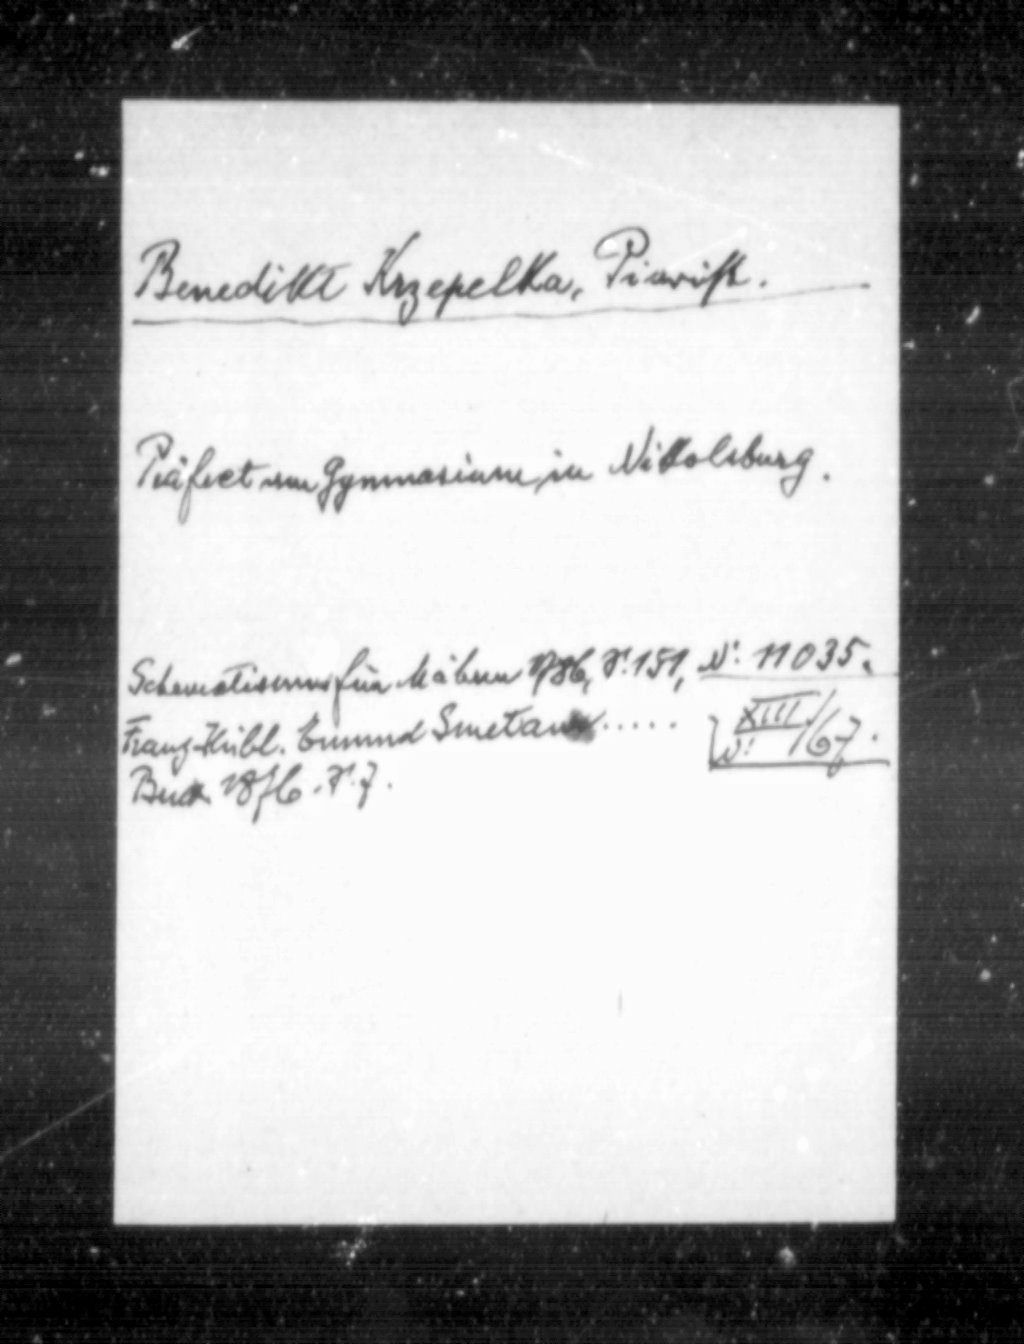 Benedikt Krzepelka, Piarist.
Präfect am Gymnasium in Nikolsburg.
Schematismus für Mähren 1786, S. 151, N: 11035.
Franz Hübl. Smetana..... XIII/67.
N:
1876. S. 7.